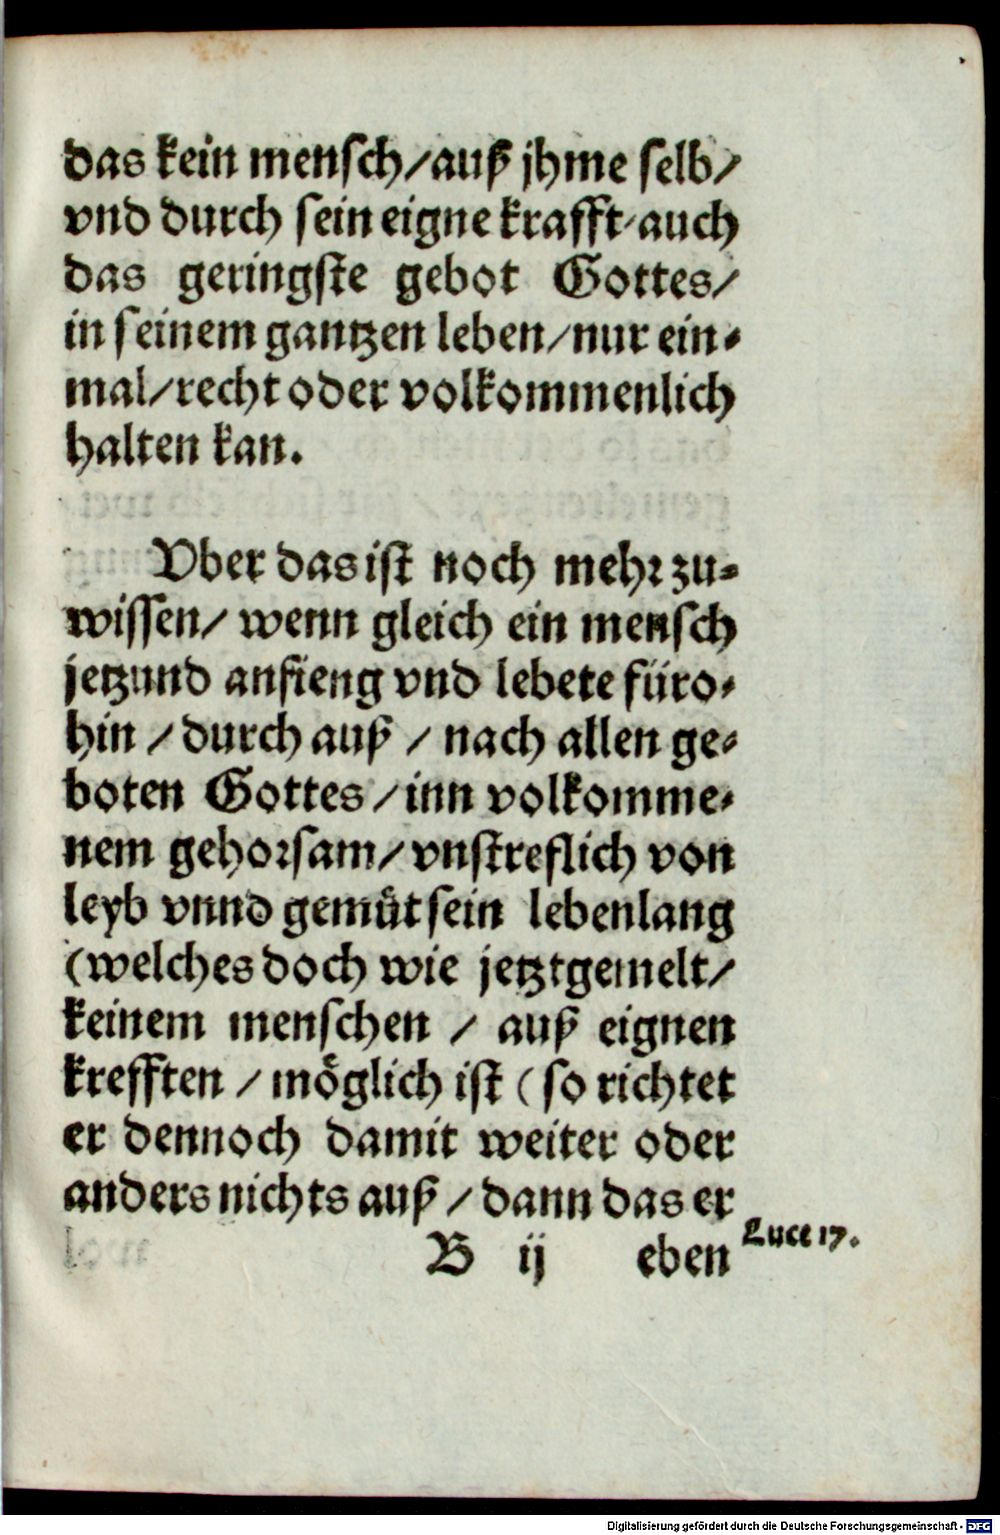 das kein mensch/auß jhme selb/
vnd durch sein eigne krafft/auch
das geringste gebot Gottes/
in seinem gantzen leben/nur ein⸗
mal/recht oder volkommenlich
halten kan.
Vber das ist noch mehr zu⸗
wissen/ wenn gleich ein mensch
jetzund anfieng vnd lebete füro⸗
hin / durch auß / nach allen ge⸗
boten Gottes / inn volkomme⸗
nem gehorsam/ vnstreflich von
leyb vnnd gemuͤt sein lebenlang
(welches doch wie jetztgemelt/
keinem menschen / auß eignen
krefften / moͤglich ist ( so richtet
er dennoch damit weiter oder
anders nichts auß / dann das er
Luce 17.
B ij eben
Digitalisierung gefördert durch die Deutsche Forschungsgemeinschaft - DFG